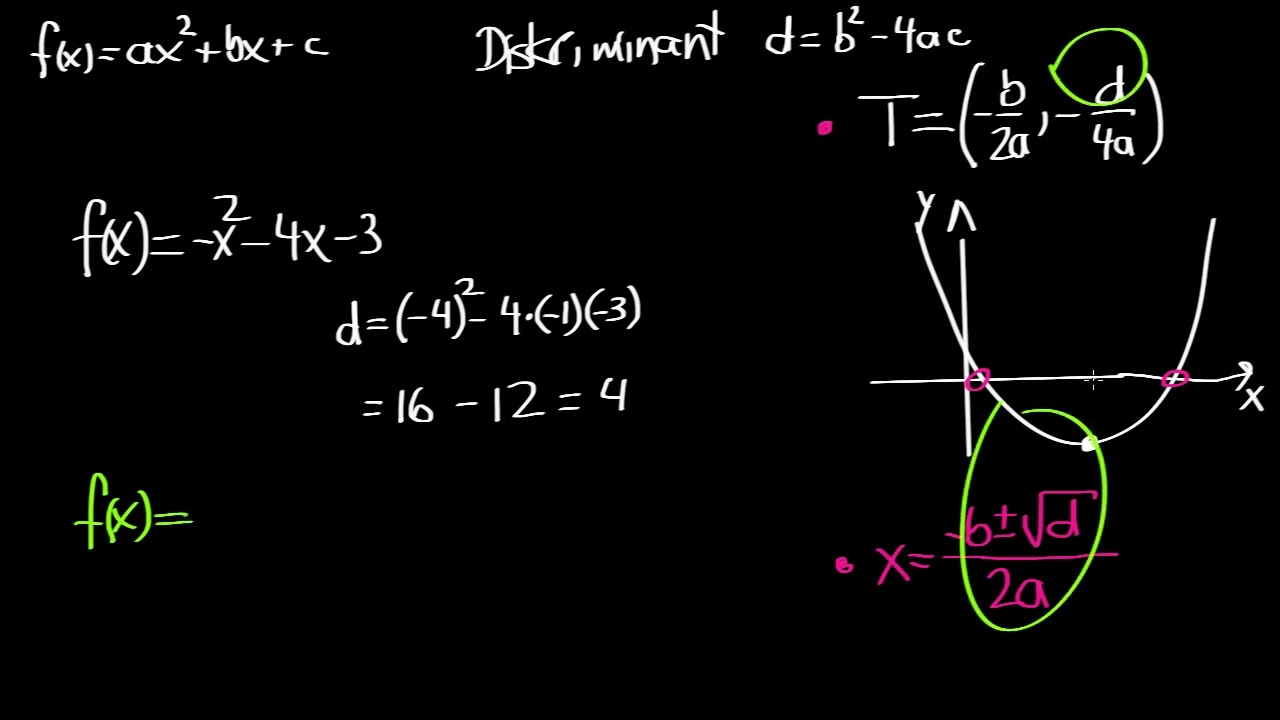 f(x)=ax²+bx+c
Diskriminant d=b²-4ac
• T=(-b/2a, -d/4a)
f(x)=-x²-4x-3
d=(-4)²-4·(-1)(-3)
=16-12=4
y
x
f(x)=
• x=(-b±√d)/2a